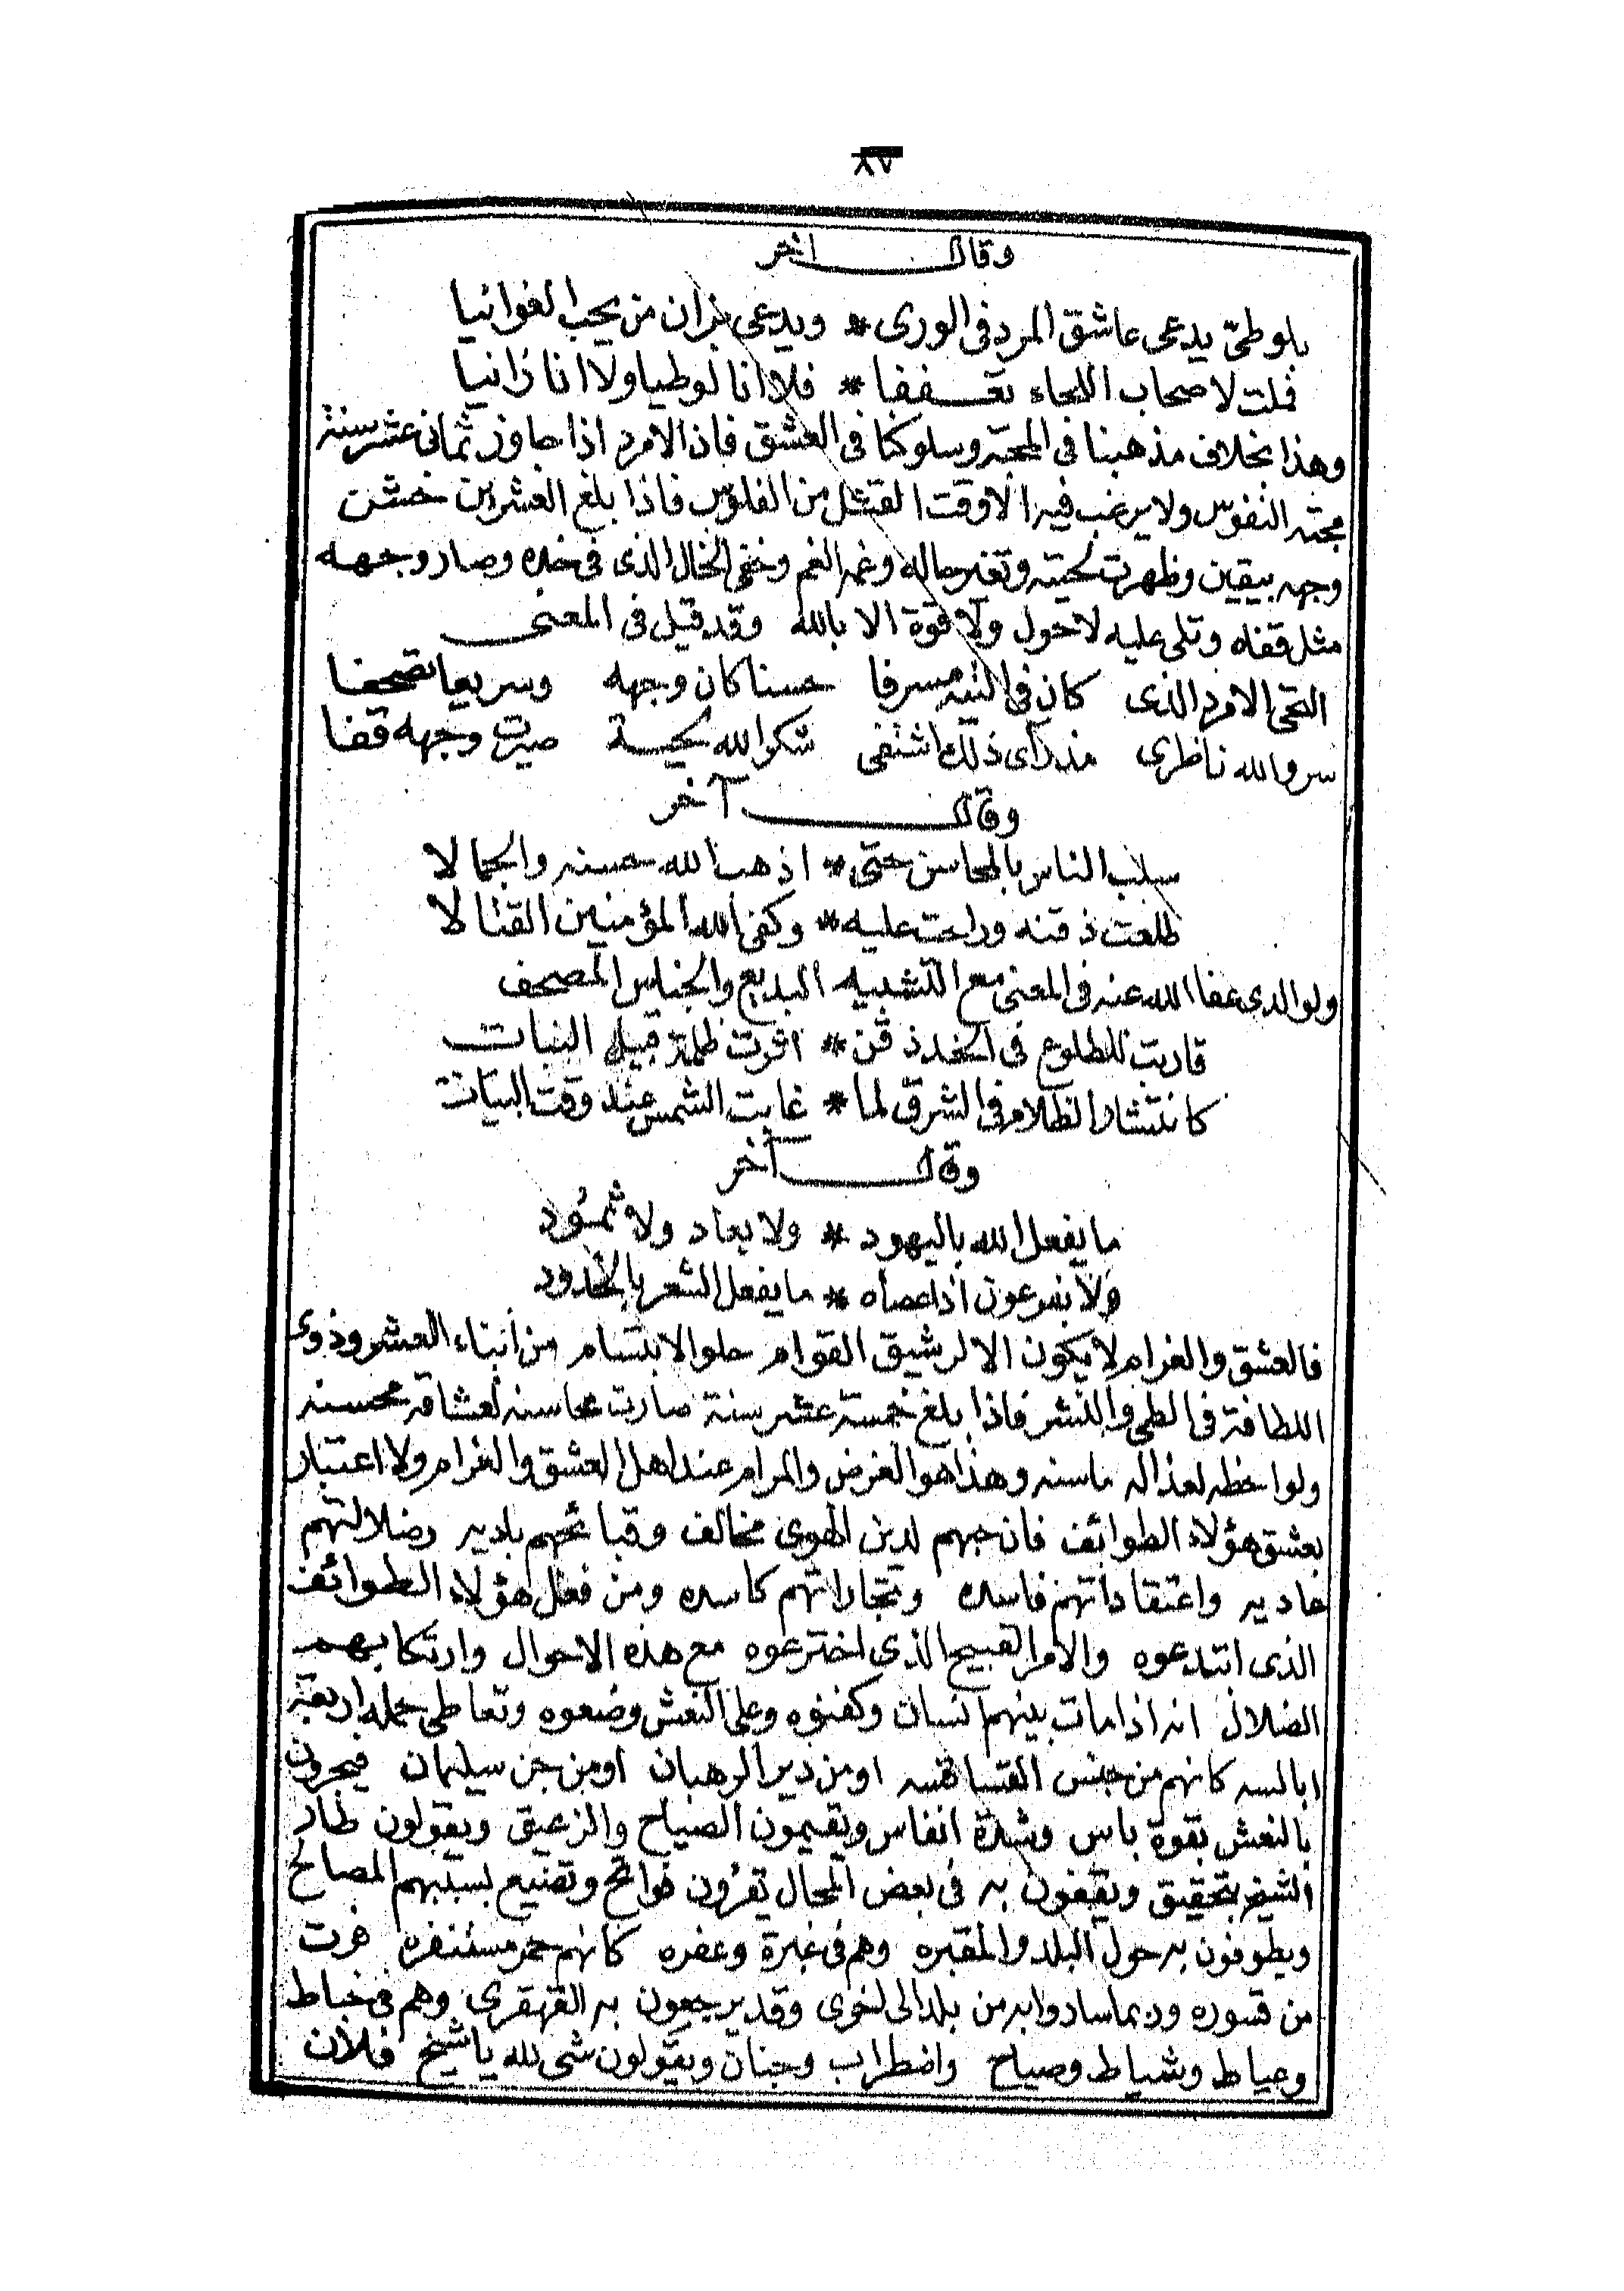 ٨٧
وقال آخر
بلوطي يدعى عاشق المرد في الورى * ويدعى بزان من يحب الغوانيا
فملت لاصحاب اللجاء تعففا * فلا انا لوطيا ولا انا زانيا
وهذا بخلاف مذهبنا في المحبة وسلوكنا في العشق فان الامرد اذا جاوز ثماني عشر سنة
مجته النفوس ولا يرغب فيه الا وقت القشل من الفلوس فاذا بلغ العشرين خشن
وجهه بيقين وظهرت لحيته وتغير حاله وغمه الغم وخفى الخال الذى في خده وصار وجهه
مثل قفاه وتلى عليه لاحول ولا قوة الا بالله وقد قيل في المعنى
التحى الامرد الذى كان في التيه مسرفا حسنا كان وجهه وسريعا تصحفا
سر والله ناظرى مذ رأى ذلك اشتفى شكر الله لحية صيرت وجهه قفا
وقال آخر
سلب الناس بالمحاسن حتى * اذهب الله حسنه والجمالا
طلعت ذقنه وراحت عليه * وكفى الله المؤمنين القتالا
ولوالدى عفا الله عنه في المعنى مع التشبيه البديع والجناس المصحف
قاربت للطلوع في الخد ذقن * اثرت ظلمة قبيل النبات
كانتشار الظلام في الشرق لما * غابت الشمس عند وقت البيات
وقال آخر
ما يفعل الله باليهود * ولا بعاد ولا ثمود
ولا بفرعون اذ اعصاه * ما يفعل الشعر بالخدود
فالعشق والغرام لا يكون الا لرشيق القوام حلو الابتسام من أبناء العشر وذوى
اللطافة في الطى والنشر فاذا بلغ خمسة عشر سنة صارت محاسنه لعشاقه محسنه
ولواحظه لعذاله ماسنه وهذا هو الغرض والمرام عند اهل العشق والغرام ولا اعتبار
بعشق هؤلاء الطوائف فان حبهم لدين الهوى مخالف وقبائحهم باديه وضلالتهم
عاديه واعتقاداتهم فاسده وتجاراتهم كاسده ومن فعل هؤلاء الطوائف
الذى ابتدعوه والامر القبيح الذى اخترعوه مع هذه الاحوال وارتكابهم
الضلال انه اذا مات بينهم انسان وكفنوه وعلى النعش وضعوه وتعاطى حمله اربعة
ابالسه كانهم من جنس القساقسه او من دير الرهبان او من جن سيلمان فيجرون
بالنعش بقوة باس وشدة انفاس ويقيمون الصياح والزعيق ويقولون طار
الشيخ بتحقيق ويقفون به في بعض المحال يقرؤن فواتح وتضيع بسببهم المصالح
ويطوفون به حول البلد والمقبره وهم في غبرة وعفره كانهم حمر مستنفره فرت
من قسوره وربما ساروا به من بلد الى اخرى وقد يرجعون به القهقرى وهم في خباط
وعياط وشياط وصياح واضطراب وجنان ويقولون شى لله يا شيخ فلان